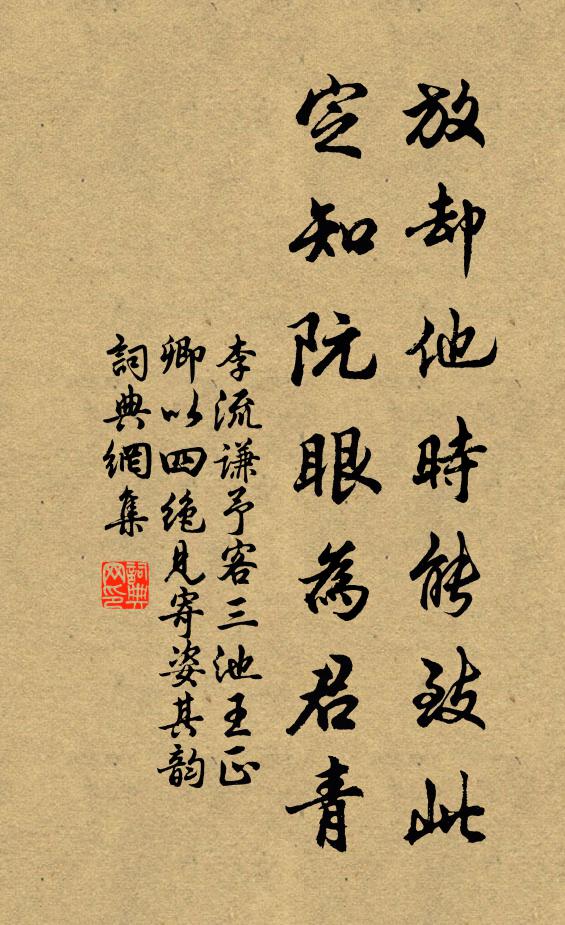 放却他時能致此
定知阮眼為君青
李流謙予客三池王正
卿以四絶見寄姿其韵
詞典網集
詞典网印